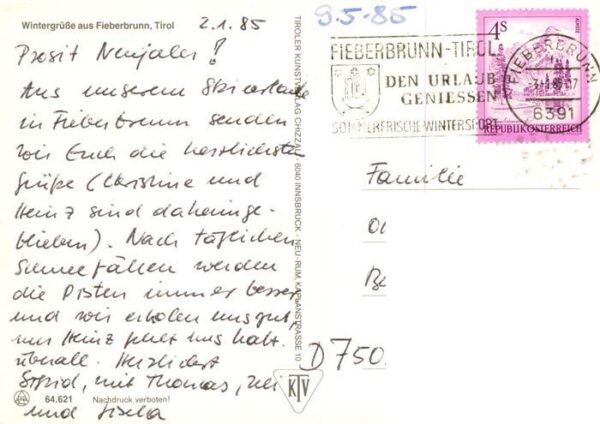 Wintergrüße aus Fieberbrunn, Tirol
2.1.85
Prosit Neujahr!
Aus unserem Skiurlaub
in Fieberbrunn senden
wir Euch die herzlichsten
Grüße (Christine und
Heinz sind daheimge-
blieben). Nach täglichen
Schneefällen werden
die Pisten immer besser
und wir erholen uns gut,
nur Heinz fehlt uns halt
überall. Herzlichst
Sigrid, mit Thomas, Uli
und Gisela
64.621 Nachdruck verboten!
TIROLER KUNSTVERLAG CHIZZALI 6040 INNSBRUCK - NEU-RUM, KAPLANSTRASSE 10
KTV
9.5-85
FIEBERBRUNN-TIROL
DEN URLAUB
GENIESSEN
SOMMERFRISCHE-WINTERSPORT
FIEBERBRUNN
6391
4S
ALMSEE
REPUBLIK ÖSTERREICH
Familie
D 750